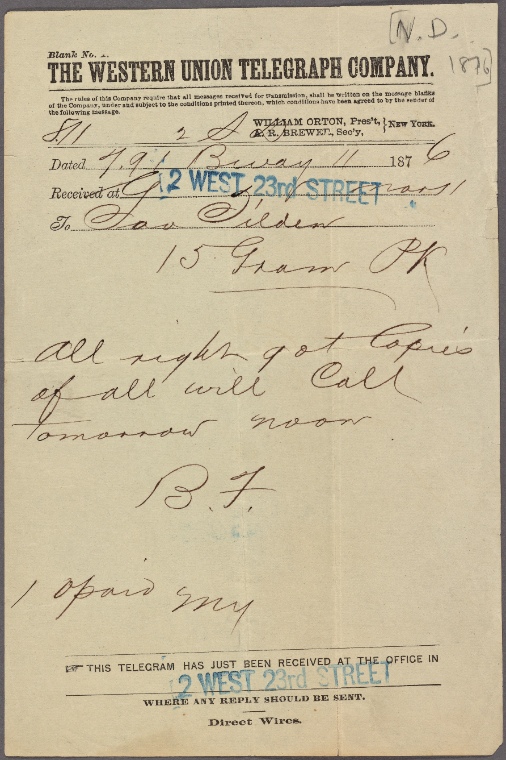 [N.D.
1876]
Blank No. 1.
THE WESTERN UNION TELEGRAPH COMPANY.
The rules of this Company require that all messages received for transmission, shall be written on the message blanks
of the Company, under and subject to the conditions printed thereon, which conditions have been agreed to by the sender of
the following message.
WILLIAM ORTON, Pres't,
R. BREWER, Sec'y, } NEW YORK.
Dated 791 Bway 11 1876
Received at
2 WEST 23rd STREET
To Gov Tilden
15 Gram Pk
All right got Copies
of all will Call
tomorrow noon
B. F.
paid
THIS TELEGRAM HAS JUST BEEN RECEIVED AT THE OFFICE IN
2 WEST 23rd STREET
WHERE ANY REPLY SHOULD BE SENT.
Direct Wires.